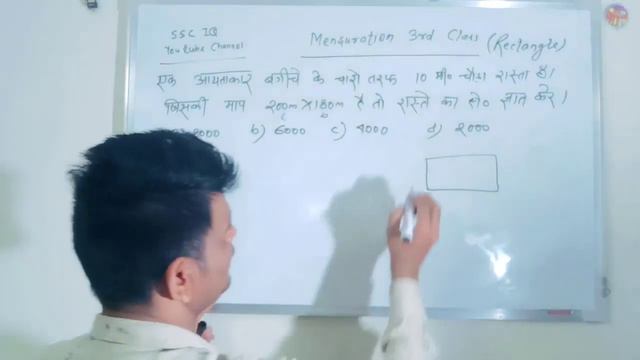 SSC IQ
YouTube Channel
Mensuration 3rd Class (Rectangle)
एक आयताकार बगीचे के चारो तरफ 10 मी० चौड़ा रास्ता है।
जिसकी माप 200m × 180m है तो रास्ते का क्षे० ज्ञात करे।
l b
8000 b) 6000 c) 4000 d) 2000